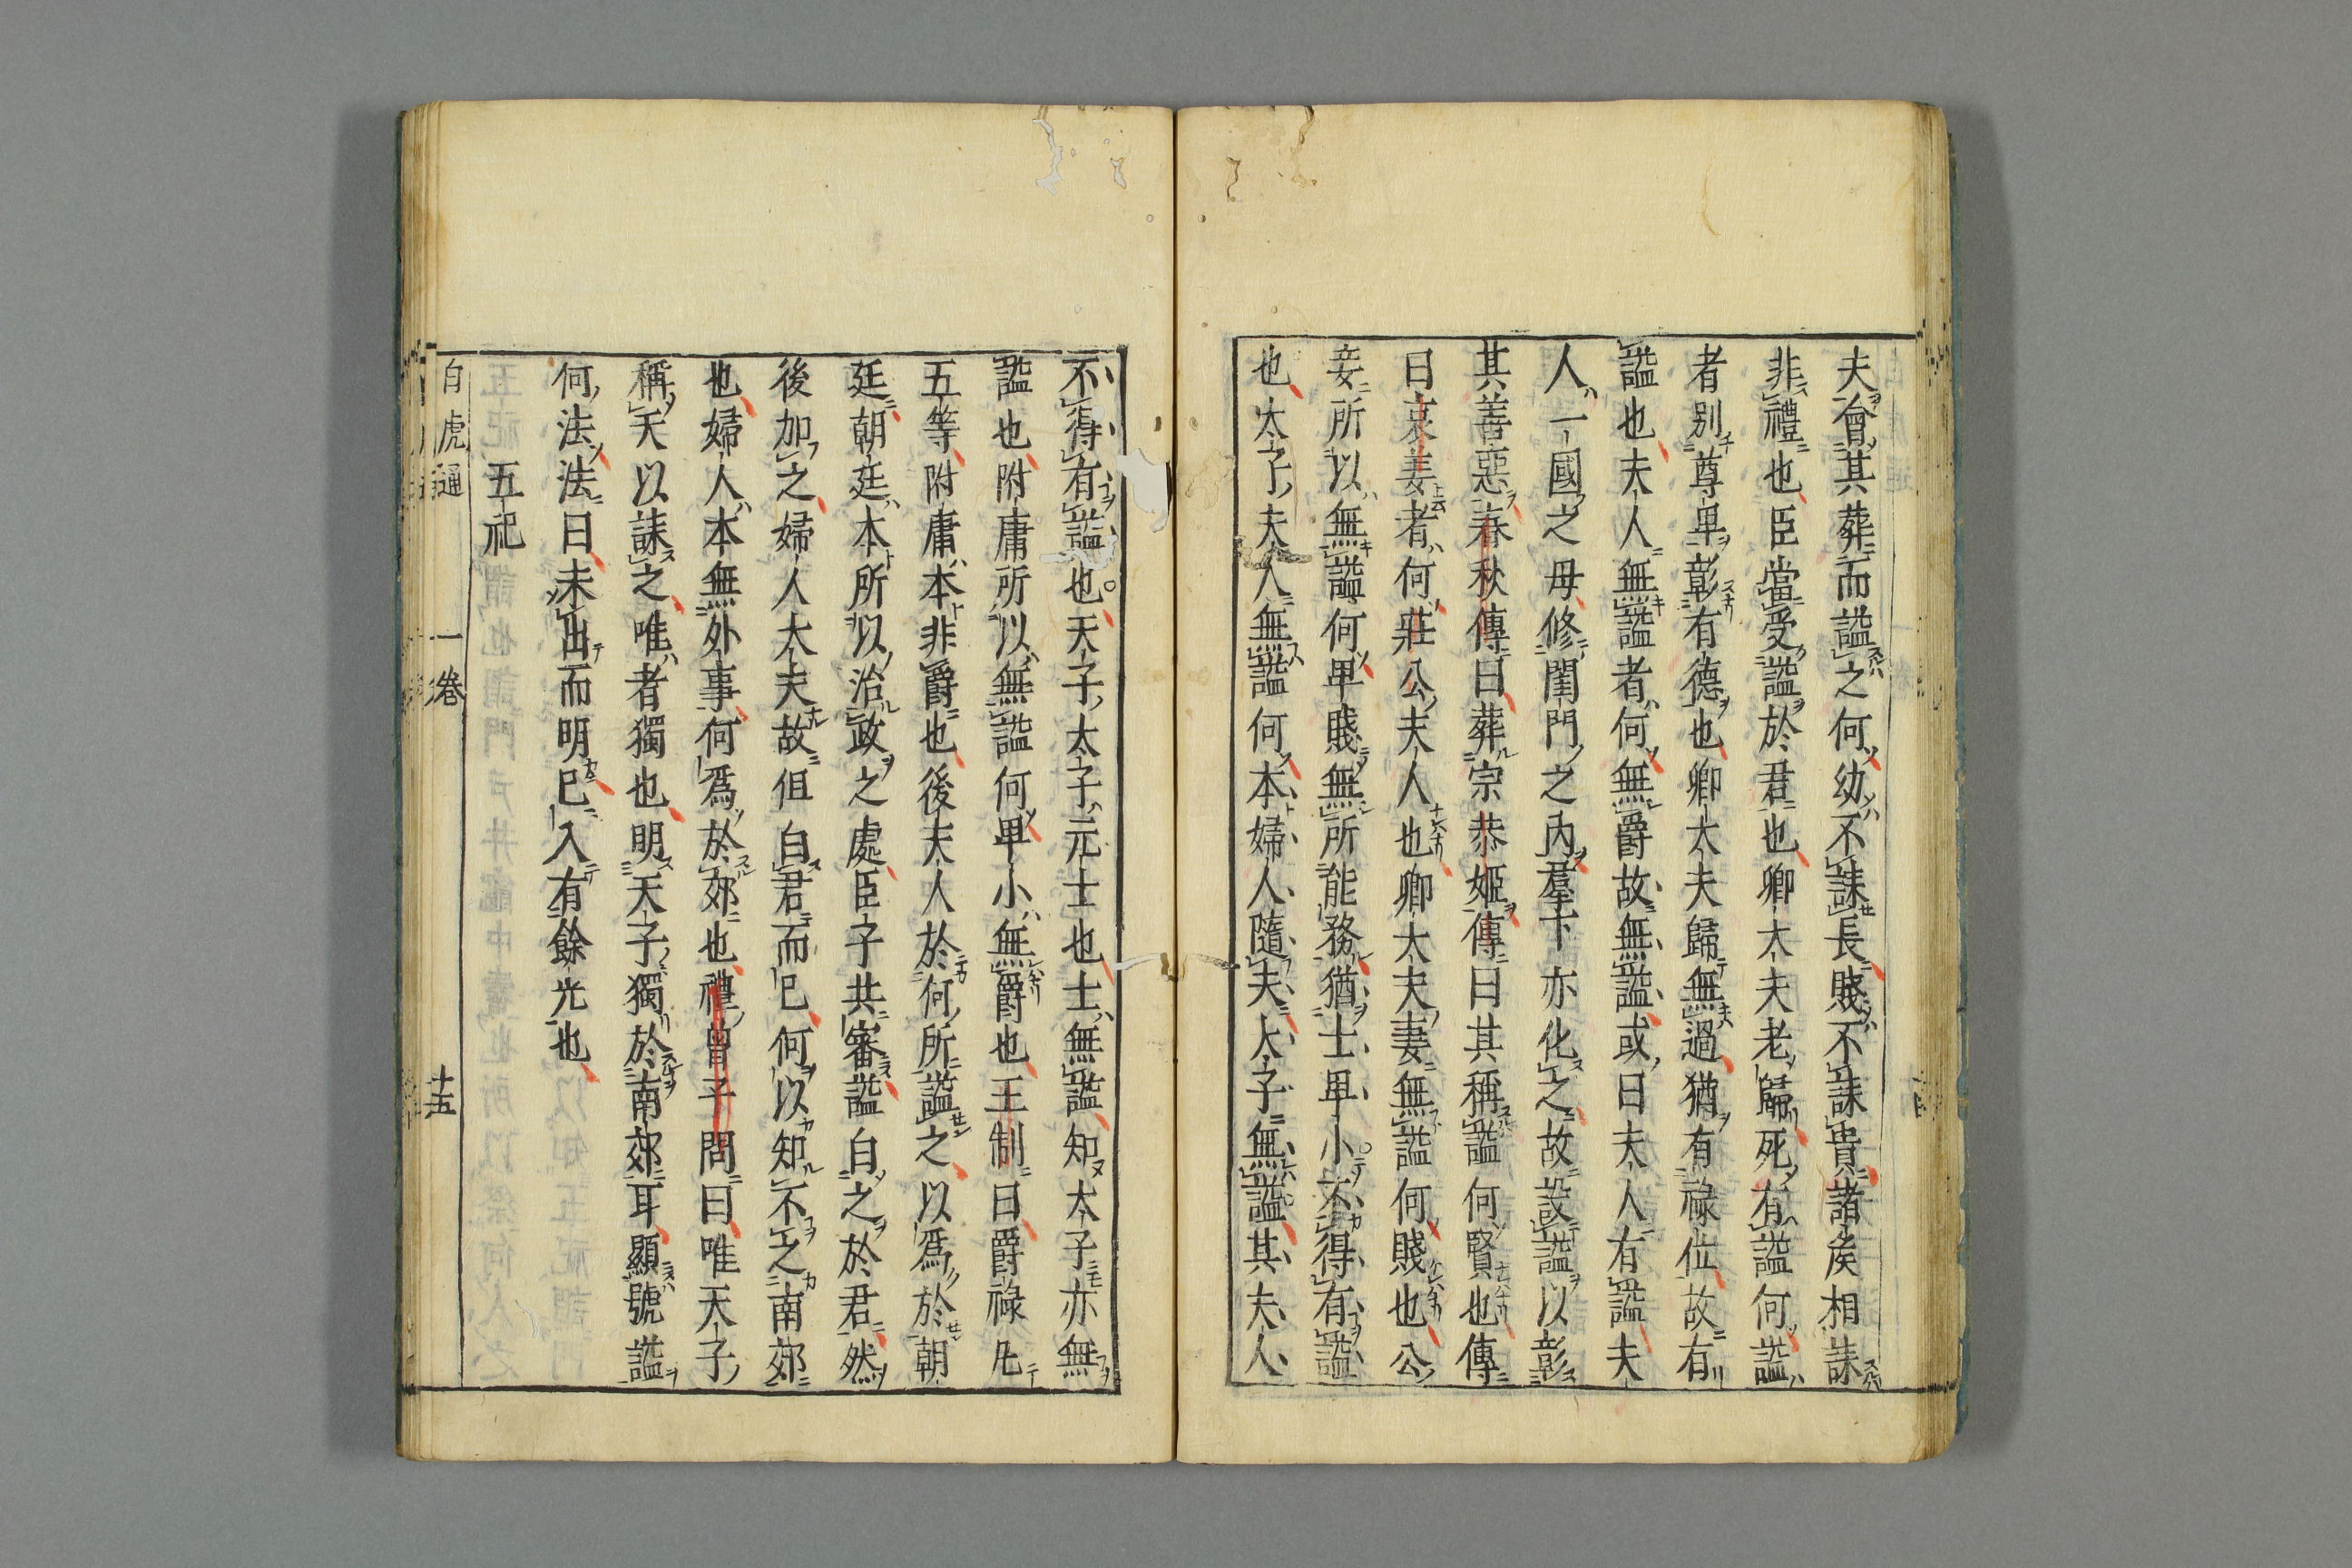 夫會其葬而諡之何幼不誄長賤不誄貴諸矦相誄
非禮也臣當受諡於君也卿大夫老歸死有諡何諡
者别尊卑彰有德也卿大夫歸無過猶有祿位故有
諡也夫人無諡者何無爵故無諡或曰夫人有諡夫
人一國之母修閨門之內羣下亦化之故設諡以彰
其善惡春秋傳曰葬宗恭姬傳曰其稱諡何賢也傳
曰哀姜者何莊公夫人也卿大夫妻無諡何賤也公
妾所以無諡何卑賤無所能務猶士卑小不得有諡
也太子夫人無諡何本婦人隨夫太子無諡其夫人
不得有諡也天子太子元士也士無諡知太子亦無
諡也附庸所以無諡何卑小無爵也王制曰爵祿凡
五等附庸本非爵也後夫人於何所諡之以爲於朝
廷朝廷本所以治政之處臣子共審諡白之於君然
後加之婦人大夫故但白君而已何以知不之南郊
也婦人本無外事何爲於郊也禮曾子問曰唯天子
稱天以誄之唯者獨也明天子獨於南郊耳顯號諡
何法法曰未出而明已入有餘光也
五祀
白虎通 一卷 十五